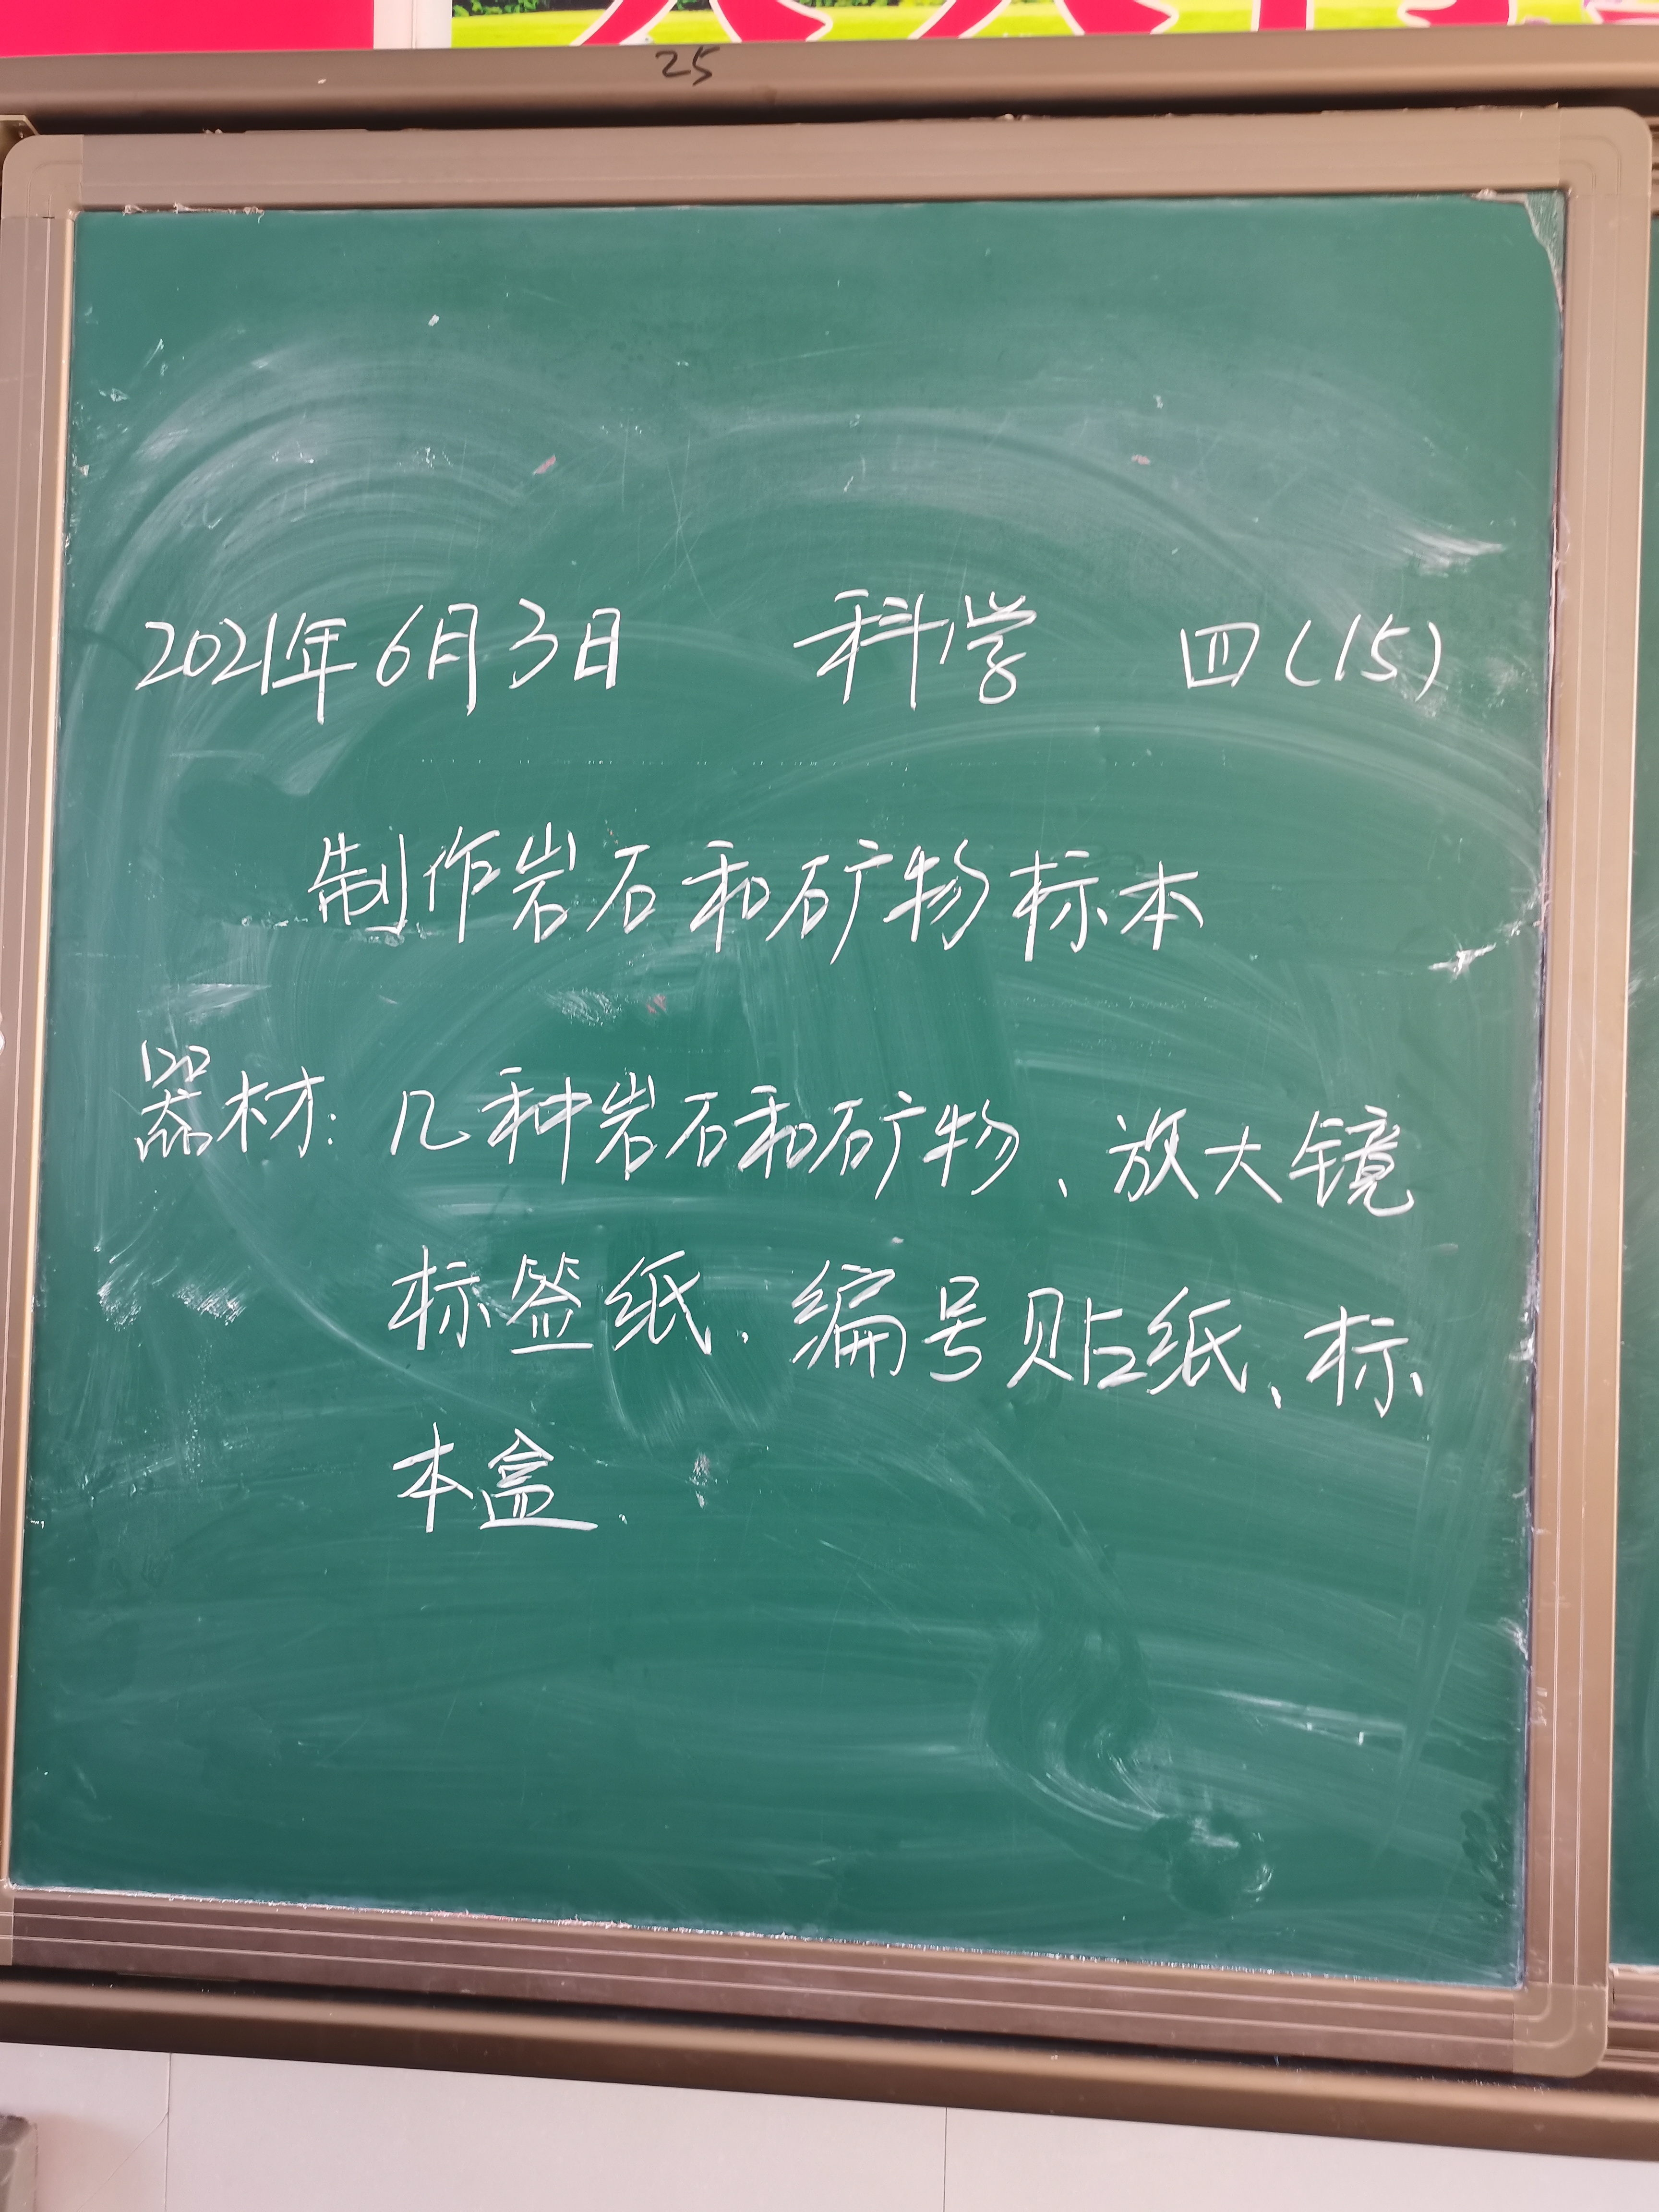 25
2021年6月3日 科学 四(15)
制作岩石和矿物标本
器材：几种岩石和矿物、放大镜
标签纸、编号贴纸、标
本盒.